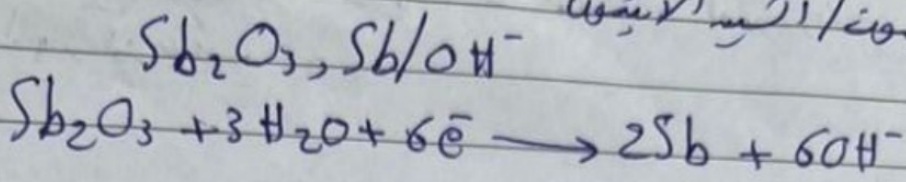 Sb₂O₃, Sb/OH⁻
Sb₂O₃ + 3H₂O + 6e⁻ ⟶ 2Sb + 6OH⁻